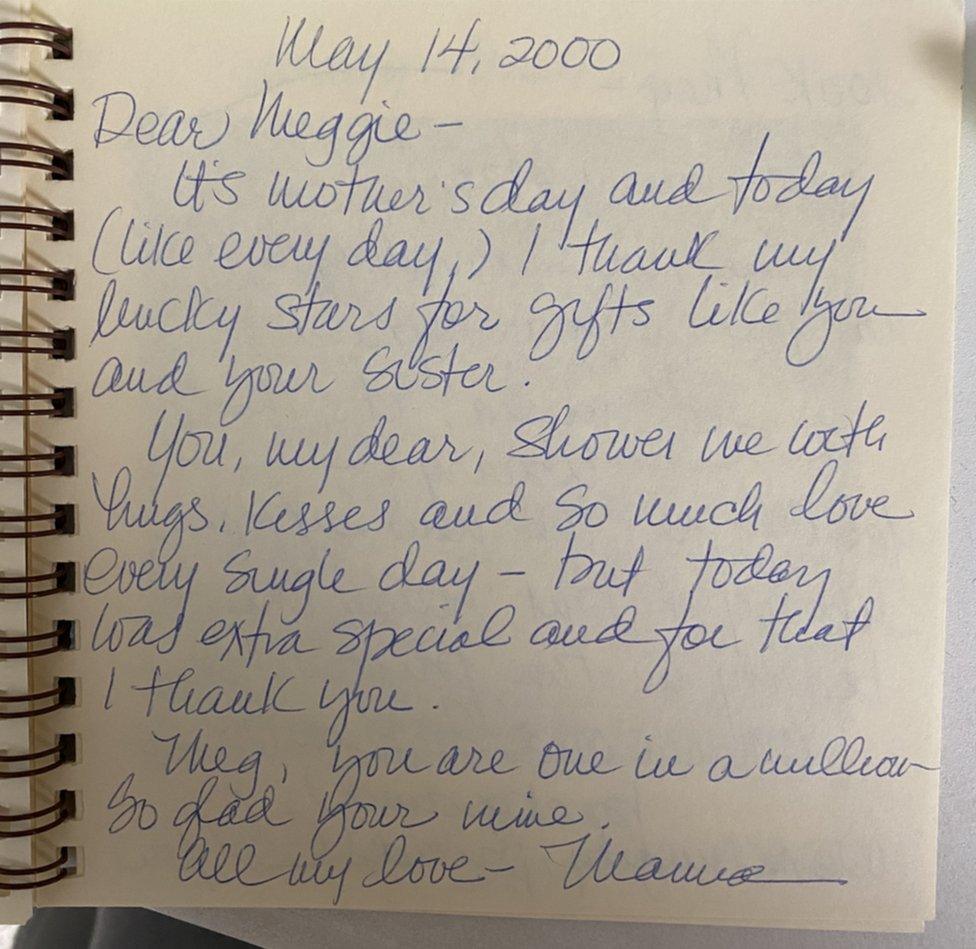 May 14, 2000
Dear Meggie -
It's mother's day and today
(like every day,) I thank my
lucky stars for gifts like you
and your sister.
You, my dear, shower me with
hugs, kisses and so much love
every single day - but today
was extra special and for that
I thank you.
Meg, you are one in a million
So glad your mine.
All my love - Mama